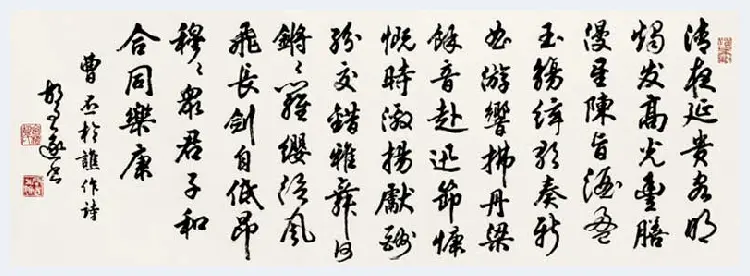 清夜延貴客明
燭发高光豐膳
漫星陳旨酒盈
玉觴絃歌奏新
曲游響拂丹梁
餘音赴迅節慷
慨時激揚獻酬
紛交錯雅舞何
鏘〻羅纓從風
飛長劍自低昂
穆〻眾君子和
合同樂康
曹丕於譙作詩